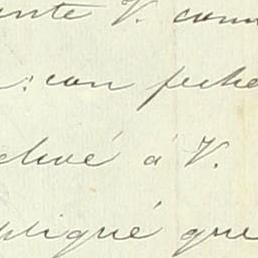 nte V. com
: con fecha
eluvé á V.
pliqué que